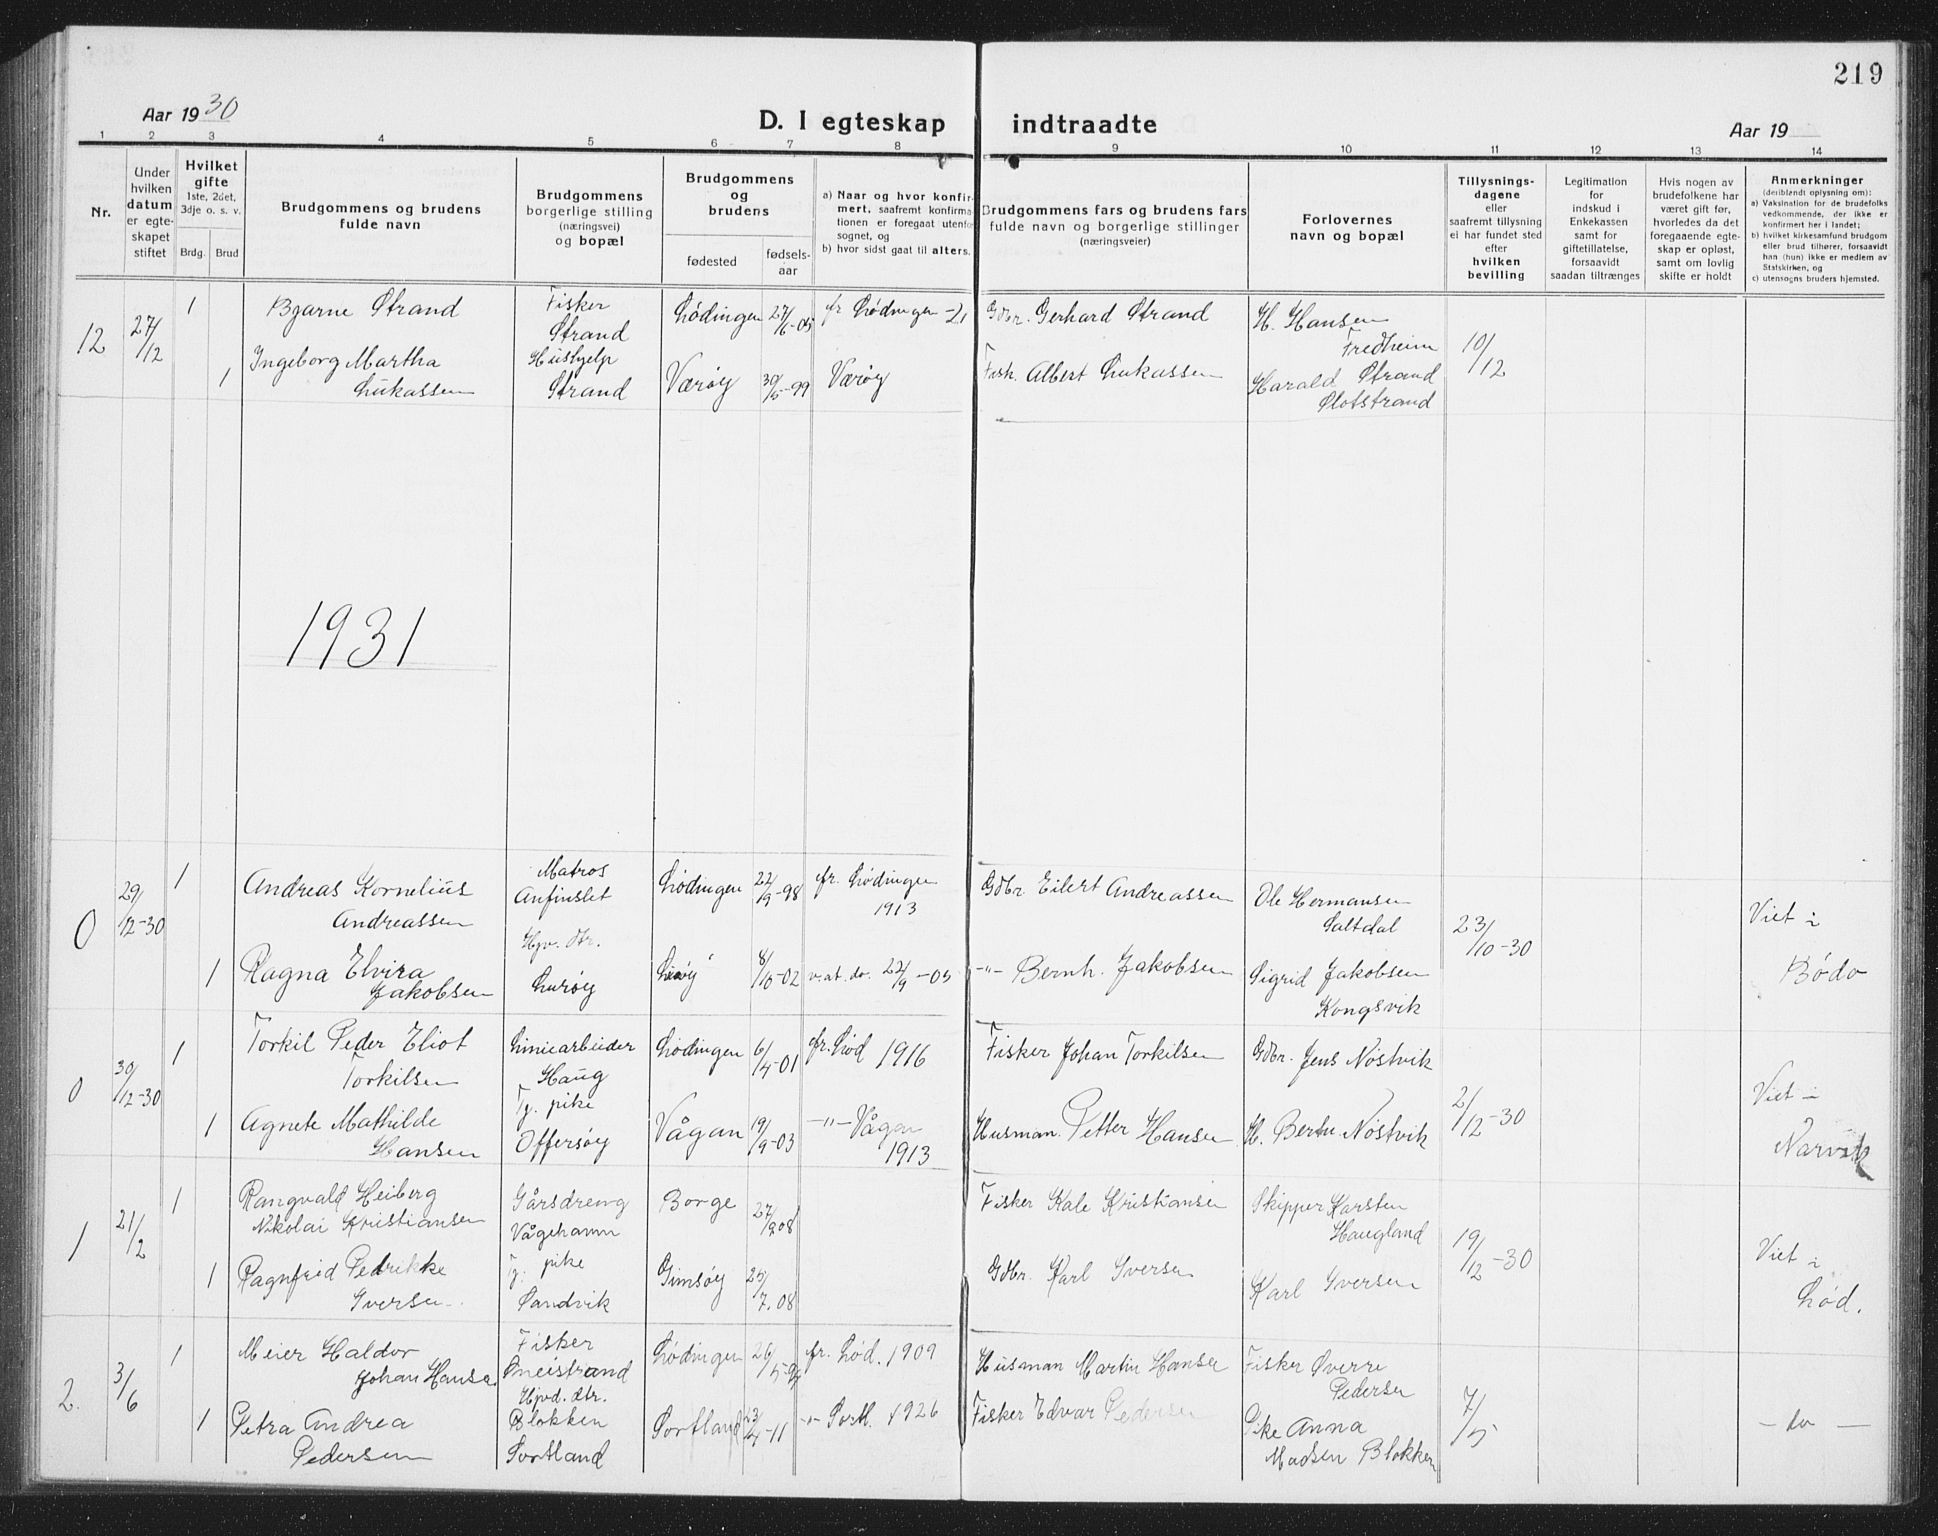 219
Aar 1930
D. I egteskap indtraadte
Aar 19
1 2 3 4 5 6 7 8 9 10 11 12 13 14
Nr.
Under
hvilken
datum
er egte-
skapet
stiftet
Hvilket
gifte
1ste, 2det,
3dje o. s. v.
Brdg. Brud
Brudgommens og brudens
fulde navn
Brudgommens
borgerlige stilling
(næringsvei)
og bopæl
Brudgommens
og
brudens
fødested
fødsels-
aar
a) Naar og hvor konfir-
mert, saafremt konfirma-
tionen er foregaat utenfor
sognet, og
b) hvor sidst gaat til alters.
Brudgommens fars og brudens fars
fulde navn og borgerlige stillinger
(næringsveier)
Forlovernes
navn og bopæl
Tillysnings-
dagene
eller
saafremt tillysning
ei har fundet sted
efter
hvilken
bevilling
Legitimation
for
indskud i
Enkekassen
samt for
giftetillatelse,
forsaavidt
saadan tiltrænges
Hvis nogen av
brudefolkene har
været gift før,
hvorledes da det
foregaaende egte-
skap er opløst,
samt om lovlig
skifte er holdt
Anmerkninger
(deriblendt oplysning om):
a) Vaksination for de brudefolks
vedkommende, der ikke er
konfirmert her i landet;
b) hvilket kirkesamfund brudgom
eller brud tilhører, forsaavidt
han (hun) ikke er medlem av
Statskirken, og
c) utensogns bruders hjemsted.
12
27/12
1
Bjarne Strand
Fisker
Strand
Lödingen
27/6-05
fr Lödingen -21
Gdbr. Gerhard Strand
H. Hansen
Fredheim
10/12
1
Ingeborg Martha
Lukassen
Hushjelp
Strand
Værøy
30/5-99
Værøy
Fisk. Albert Lukassen
Harald Strand
Slotstrand
1931
0
29/12-30
1
Andreas Kornelius
Andreassen
Matros
Anfinslet
Lödingen
22/9-98
fr. Lödingen
1913
Gdbr. Eilert Andreassen
Ole Hermansen
Saltdal
23/10-30
Viet i
Bödo
1
Ragna Elvira
Jakobsen
Hpv. dtr.
Luröy
8/10-02
v. at. do. 22/9-05
-"- Bernh. Jakobsen
Sigrid Jakobsen
Kongsvik
0
30/12-30
1
Torkil Peder Eliot
Torkilsen
Liniearbeider
Haug
Lödingen
6/4-01
fr. Löd 1916
Fisker Johan Torkilsen
Gdbr. Jens Nöstvik
2/12-30
Viet i
Narvik
1
Agnete Mathilde
Hansen
Tj. pike
Offersöy
Vågan
19/9-03
-"- Vågan
1913
Husman. Petter Hansen
H. Berta Nöstvik
1
21/2
1
Rangvald Heiberg
Nikolai Kristiansen
Gårsdreng
Vågehamn
Borge
27/2 08
Fisker Kale Kristiansen
Skipper Karsten
Haugland
19/12-30
Viet i
Löd.
1
Ragnfrid Pedrikke
Iversen
Tj. pike
Sandvik
Gimsöy
25/7. 08
Gdbr. Karl Iversen
Karl Iversen
2.
3/6
1
Meier Haldor
Johan Hansen
Fisker
Sneistrand
Lödingen
fr. Löd. 1909
Husman Martin Hansen
Fisker Sverre
Pedersen
7/5
- do -
1
Petra Andrea
Pedersen
Hpvd. dtr.
Blokken
Sortland
Sortland
23/4-11
-"- Sortl. 1926
Fisker Edvar Pedersen
Pike Anna
Madsen Blokken